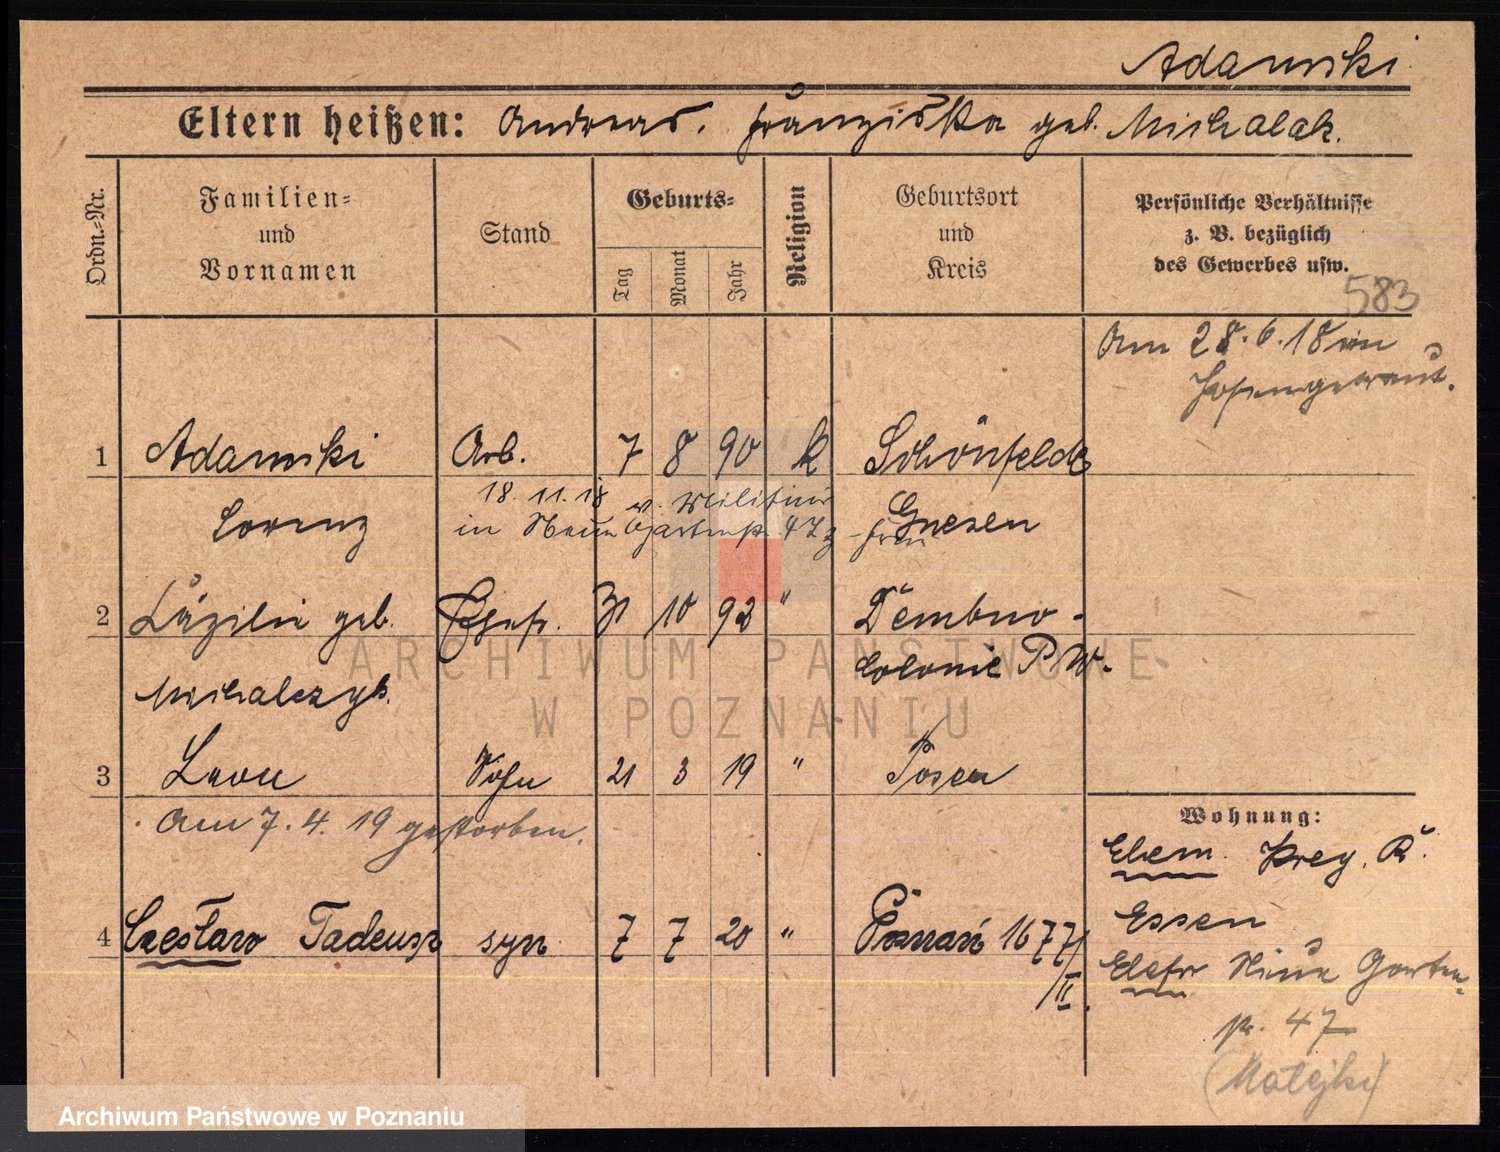 Adamski
Eltern heißen: Andreas. Franziska geb. Michalak.
Ordn.-Nr.
Familien-
und
Vornamen
Stand
Geburts-
Tag
Monat
Jahr
Religion
Geburtsort
und
Kreis
Persönliche Verhältnisse
z. B. bezüglich
des Gewerbes usw.
583
Am 28.6.18 in
Posen getraut.
1 Adamski Arb. 7 8 90 k Schönfelde
Lorenz Gnesen
18.11.18 v. Militär
in Neue Gartenstr. 47 z Frau
2 Cäzilie geb. Ehefr. 31 10 92 " Dembno-
Michalczyk. Colonie P W.
3 Leon Sohn 21 3 19 " Posen
Am 7.4.19 gestorben.
4 Czesław Tadeusz syn 7 7 20 " Poznań 1677/
/II.
Wohnung:
Ehem. Kreg. R.
Essen
Ehefr Neue Garten-
str. 47
(Matejki)
ARCHIWUM PAŃSTWOWE
W POZNANIU
Archiwum Państwowe w Poznaniu